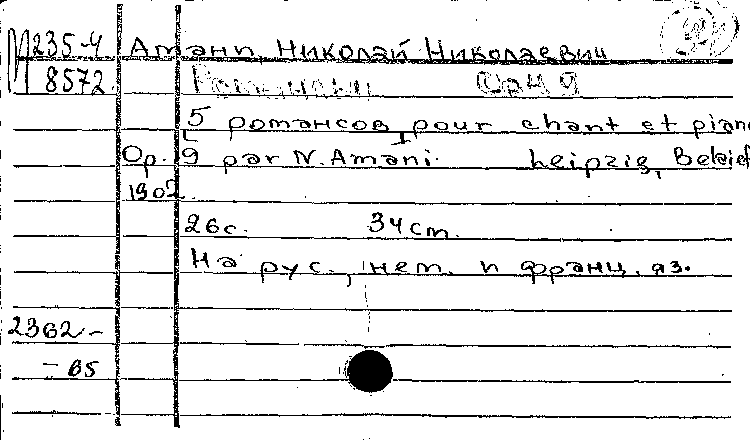 М235-4 Амани, Николай Николаевич
8572 Романсы Соч 9
5 романсов pour chant et pian
Op. 9 par N. Amani. Leipzig, Belaief
1902
26с. 34 cm.
На рус., нем. и франц. яз.
2362-
-65